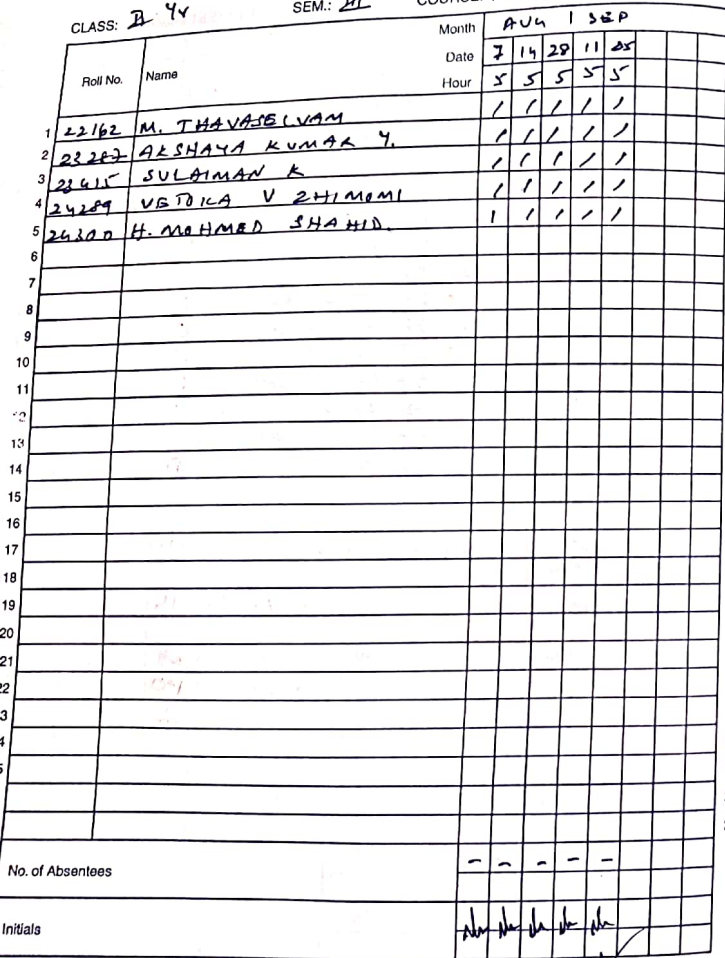 CLASS: II Yr SEM.: III
Month AUG | SEP
Date 7 14 28 11 25
Roll No. Name Hour 5 5 5 5 5
1 22162 M. THAVASELVAM / / / / /
2 23287 AKSHAYA KUMAR Y. / / / / /
3 23415 SULAIMAN K / / / / /
4 24289 VETOKA V ZHIMOMI / / / / /
5 24300 H. MOHMED SHAHID. / / / / /
6
7
8
9
10
11
12
13
14
15
16
17
18
19
20
21
22
3
4
5
No. of Absentees - - - - -
Initials